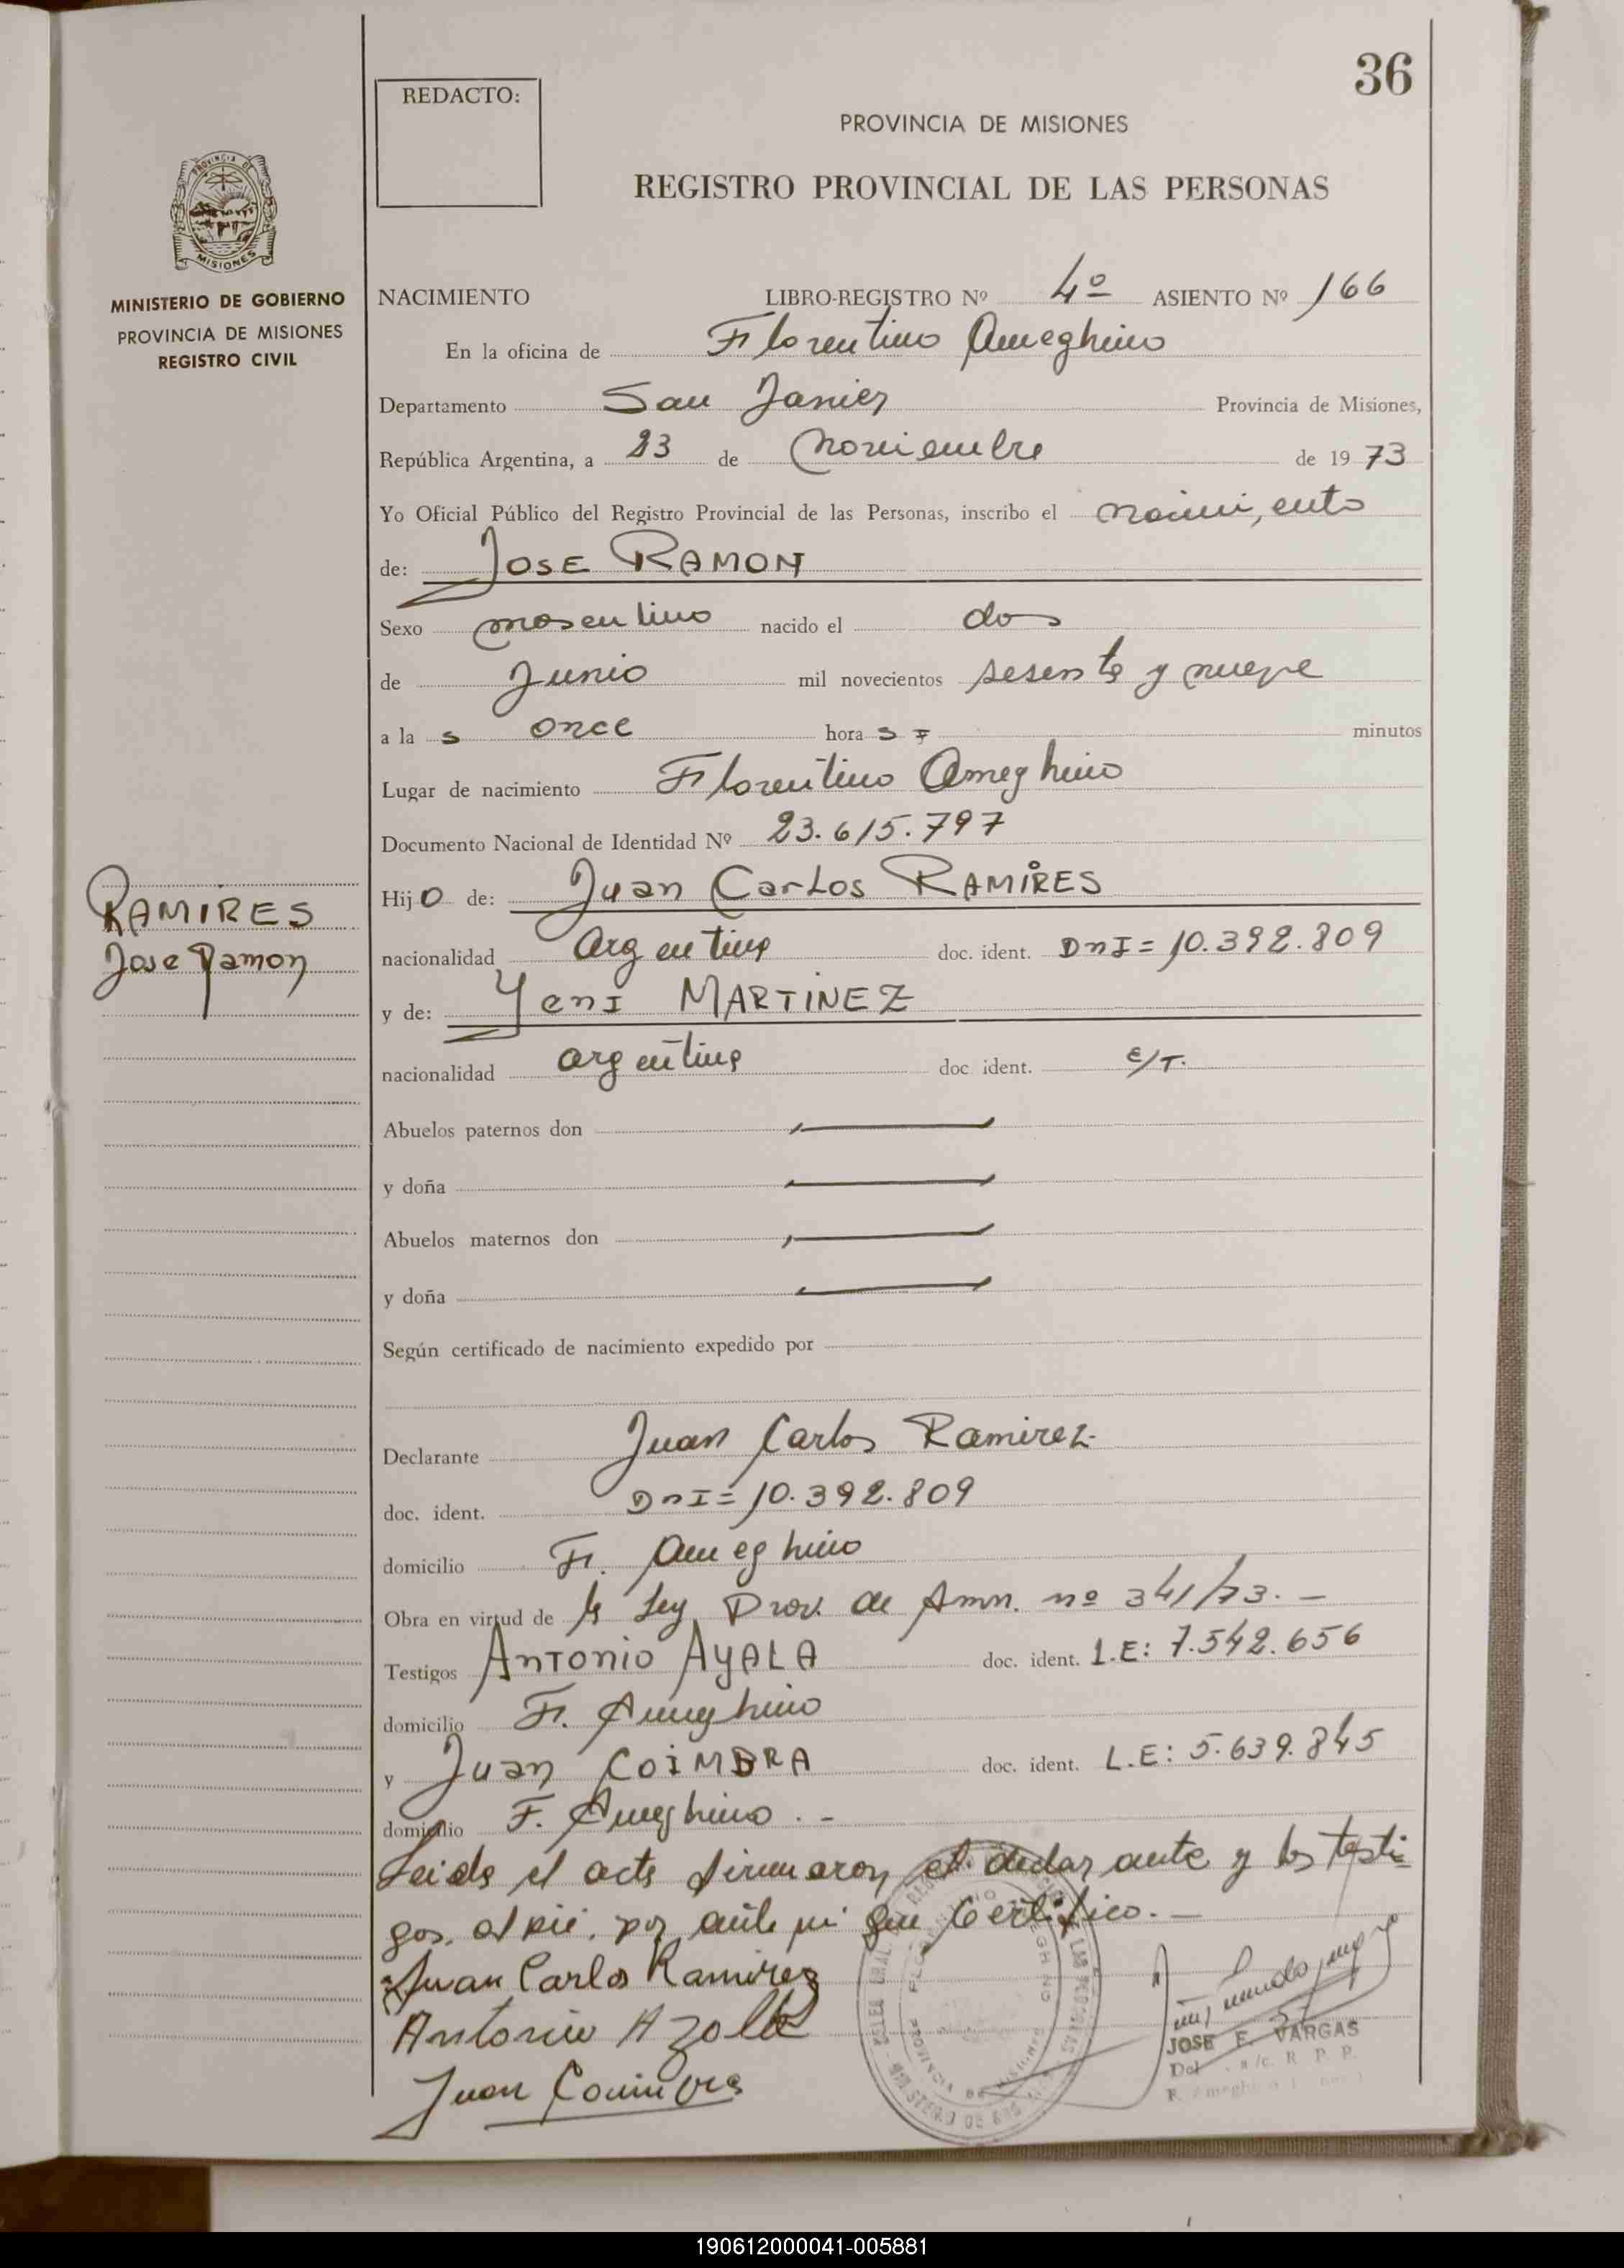 36
REDACTO:
PROVINCIA DE MISIONES
REGISTRO PROVINCIAL DE LAS PERSONAS
PROVINCIA DE
MISIONES
MINISTERIO DE GOBIERNO
PROVINCIA DE MISIONES
REGISTRO CIVIL
NACIMIENTO LIBRO-REGISTRO Nº 4º ASIENTO Nº 166
En la oficina de Florentino Ameghino
Departamento San Javier Provincia de Misiones,
República Argentina, a 23 de Noviembre de 1973
Yo Oficial Público del Registro Provincial de las Personas, inscribo el nacimiento
de: JOSE RAMON
Sexo masculino nacido el dos
de Junio mil novecientos sesenta y nueve
a las once horas minutos
Lugar de nacimiento Florentino Ameghino
Documento Nacional de Identidad Nº 23.615.797
Hijo de: Juan Carlos RAMIRES
RAMIRES
Jose Ramon
nacionalidad argentina doc. ident. DnI= 10.392.809
y de: Yeni MARTINEZ
nacionalidad argentina doc ident. E/T.
Abuelos paternos don
y doña
Abuelos maternos don
y doña
Según certificado de nacimiento expedido por
Declarante Juan Carlos Ramirez-
doc. ident. DnI= 10.392.809
domicilio F. Ameghino
Obra en virtud de la Ley Prov. de Amn. nº 341/73. —
Testigos Antonio AyALA doc. ident. L.E: 7.542.656
domicilio F. Ameghino
y Juan COIMBRA doc. ident. L.E: 5.639.845
domicilio F. Ameghino . -
Leida el acta firmaron el declarante y los testi-
gos, al pié, por ante mi que Certifico. —
Juan Carlos Ramirez
Antonio
Juan Coimbra
JOSE E. VARGAS
R. P. P.
190612000041-005881